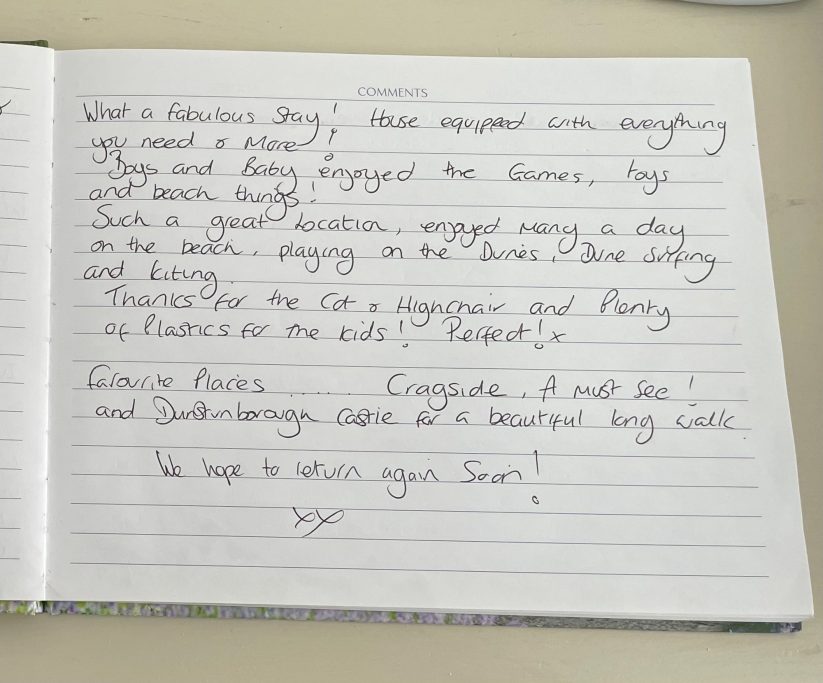 COMMENTS
What a fabulous Stay! House equipped with everything
you need & More!
Boys and Baby enjoyed the Games, toys
and beach things!
Such a great Location, enjoyed Many a day
on the beach, playing on the Dunes, Dune surfing
and kiting.
Thanks for the Cot & Highchair and Plenty
of Plastics for the kids! Perfect! x
favourite Places ...... Cragside, A Must See!
and Dunstunborough Castle for a beautiful long walk.
We hope to return again Soon!
xx